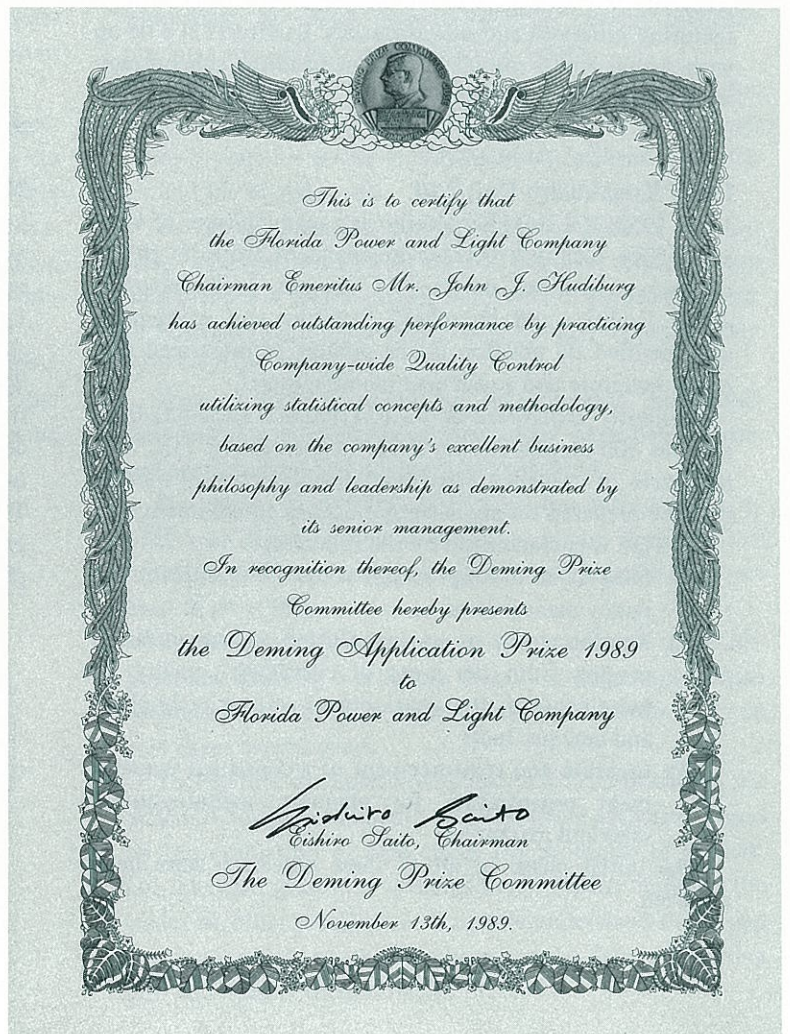 This is to certify that
the Florida Power and Light Company
Chairman Emeritus Mr. John J. Hudiburg
has achieved outstanding performance by practicing
Company-wide Quality Control
utilizing statistical concepts and methodology,
based on the company's excellent business
philosophy and leadership as demonstrated by
its senior management.
In recognition thereof, the Deming Prize
Committee hereby presents
the Deming Application Prize 1989
to
Florida Power and Light Company
Eishiro Saito
Eishiro Saito, Chairman
The Deming Prize Committee
November 13th, 1989.